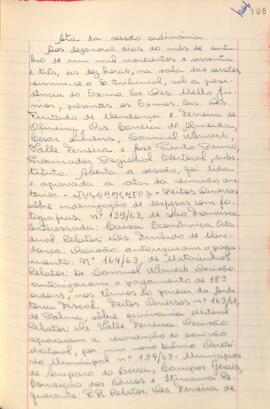 105
Ata da sessão ordinária
Aos dezenove dias do mês de outu-
bro de um mil novecentos e sessenta
e três, às dez horas, na sala das sessões
reuniu-se o Tribunal, sob a presi-
dência do Exmo. Sr. Des. Mello Jú-
nior, presentes os Exmos. Srs. Drs.
Furtado de Mendonça e Ferreira de
Oliveira, Drs. Correia de Almeida,
Cesar Silveira, Samuel Werneck,
Valle Ferreira e José
Procurador Regional Eleitoral, subs-
tituto. Aberta a sessão, foi lida
e aprovada a ata da reunião an-
terior. JULGAMENTOS - Feitos Diversos
sobre indenização de despesas com fo-
tografias. nº 139/63, de São Francisco
Interessada: Caixa Econômica Esta-
dual. Relator: Des. Furtado de Men-
donça. Decisão: autorizaram o paga-
mento. Nº 164/63, de Matozinhos
Relator: Dr. Samuel Werneck. Decisão:
autorizaram o pagamento de 189
nos termos do parecer da Audi-
toria Fiscal. Feitos Diversos nº 163/63
de sobre escrivania eleitoral
Relator: Dr. Valle Ferreira. Decisão:
aprovaram a recondução do escrivão
eleitoral, por um novo biênio. Diretó-
rio Municipal nº 194/63. Municípios
de Amparo da Serra, Campos Gerais,
Conceição dos Ouros e Itumirim. Re-
querente: P.R. Relator: Des. Ferreira de